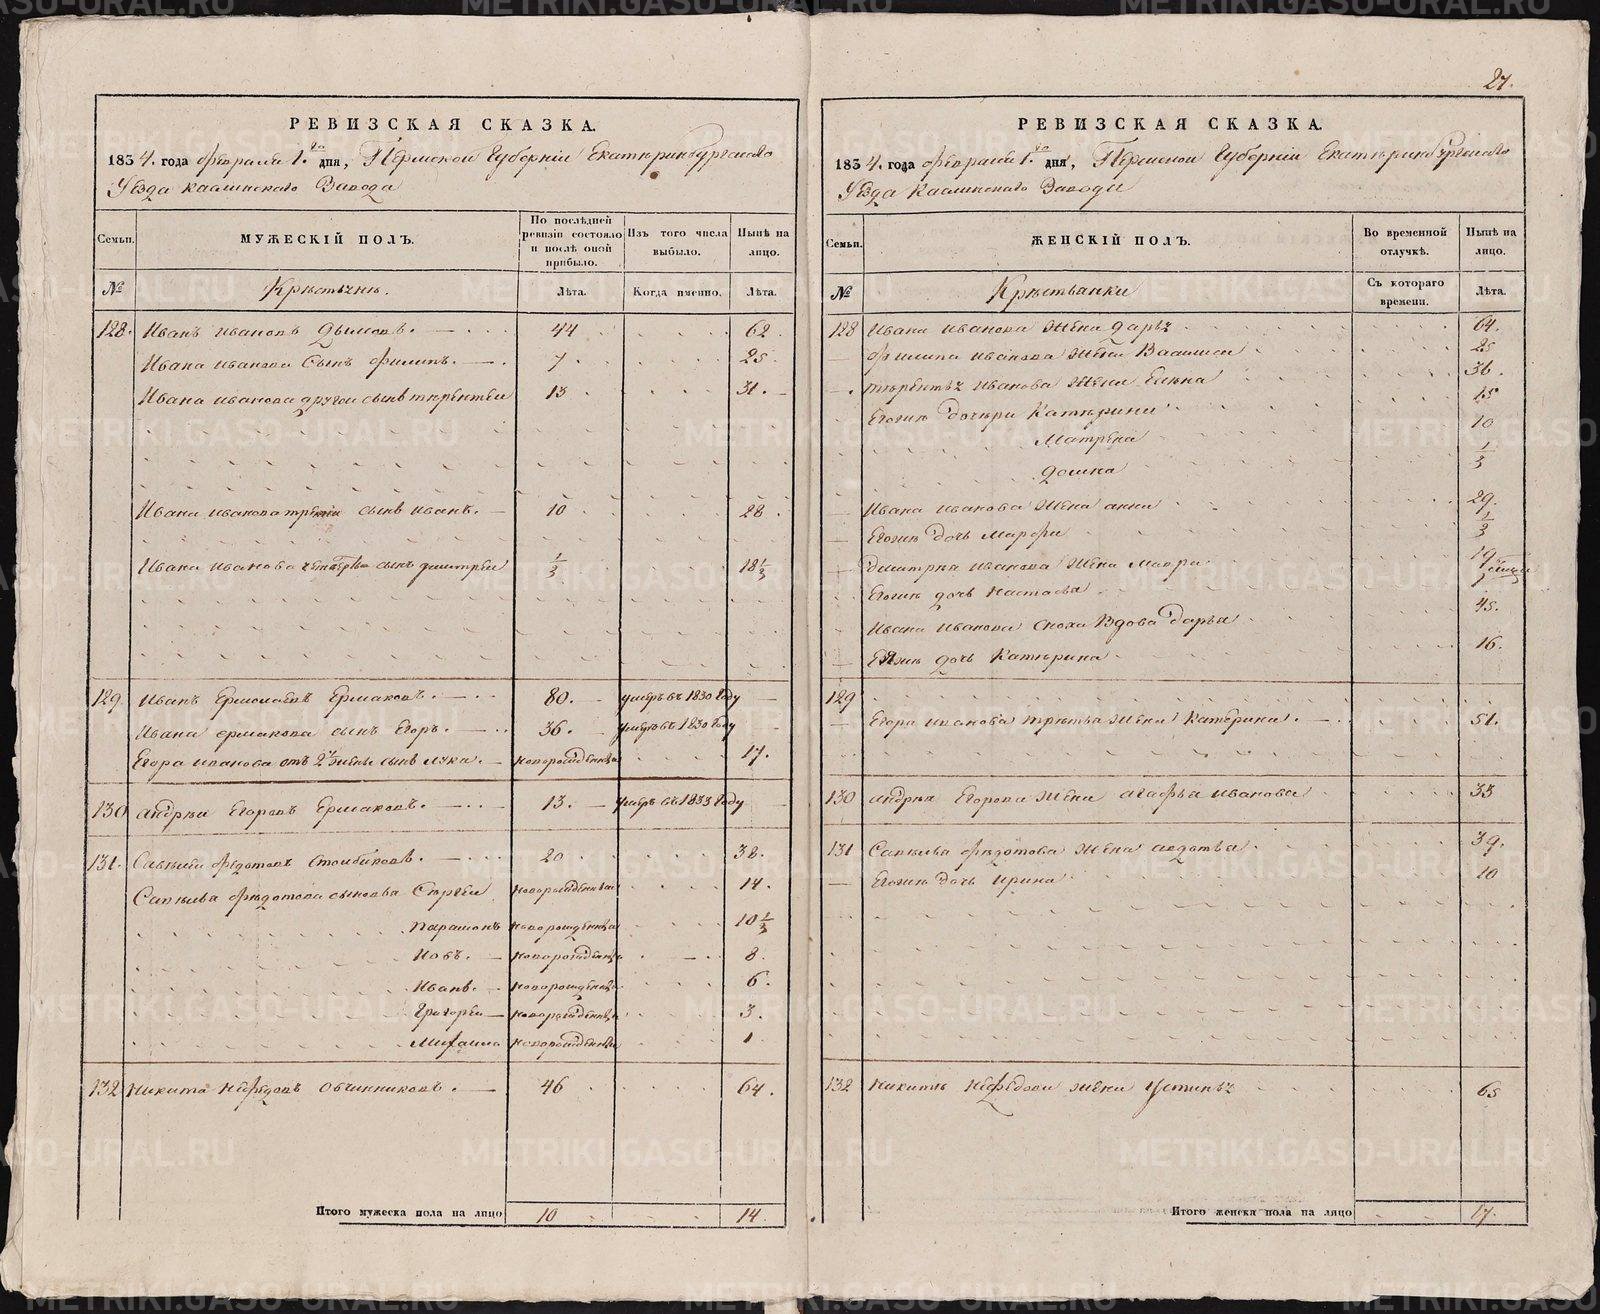 27.
РЕВИЗСКАЯ СКАЗКА.
1834. года февраля 1.го дня, Пермской Губернiи Екатеринбургского
Уѣзда Каслинскаго Завода
Семьи.
МУЖЕСКIЙ ПОЛЪ.
По послѣдней ревизiи состояло и послѣ оной прибыло.
Изъ того числа выбыло.
Нынѣ на лицо.
№
Крѣстьянѣ.
Лѣта.
Когда именно.
Лѣта.
128. Иванъ Ивановъ Дымовъ. 44 62.
Ивана Иванова Сынъ Филипъ. 7 25.
Ивана Иванова другой сынъ терентей 13 31.
Ивана Иванова третiй сынъ Иванъ. 10 28
Ивана Иванова четвертой сынъ Дмитрей 1/3 18 1/3
129. Иванъ Ермолаевъ Ермаковъ. 80. умеръ въ 1830 Году
Ивана Ермакова сынъ Егоръ. 36. умеръ въ 1830 Году
Егора Иванова отъ 2й жены сынъ Лука. новорожденный 17.
130 Андрѣй Егоровъ Ермаковъ. 13. умеръ въ 1833 Году
131. Савелей Федотовъ Столбиковъ. 20 38.
Савельива Федотова сыновья Сергей новорожденный 14.
Парамонъ новорожденный 10 1/3
Иовъ. новорожденный 8.
Иванъ. новорожденный 6.
Григорей новорожденный 3.
Михаила новорожденный 1
132 Никита Нефедовъ Овчинниковъ. 46 64.
Итого мужеска пола на лицо 10 14.
РЕВИЗСКАЯ СКАЗКА.
1834. года февраля 1.го дня, Пермской Губернiи Екатеринбургского
Уѣзда Каслинскаго Завода
Семьи.
ЖЕНСКIЙ ПОЛЪ.
Во временной отлучкѣ.
Нынѣ на лицо.
№
Крѣстьянки
Съ котораго времени.
Лѣта.
128 Ивана Иванова Жена Дарья 64.
Филипа Иванова Жена Васлиса 25
терентья Иванова Жена Елѣна 36.
Егожѣ дочери Катерина 15
Матрена 10
Домна 1/3
Ивана Иванова Жена анна 29.
Егожѣ дочь Марфа 1/2
Дмитрия Иванова Жена Мавра 19
Егожѣ дочь Настасья
Ивана Иванова сноха Вдова Дарья 45.
Еяжѣ дочь Катерина 16.
129
Егора Иванова третья Жена Катерина. 51.
130 Андрѣя Егорова Жена агафья Иванова 33
131 Савельива Федотова Жена авдотья. 39.
Егожѣ дочь Ирина 10
132 Никиты Нефедова жена Устинья 65
Итого женска пола на лицо 17.
METRIKI.GASO-URAL.RU